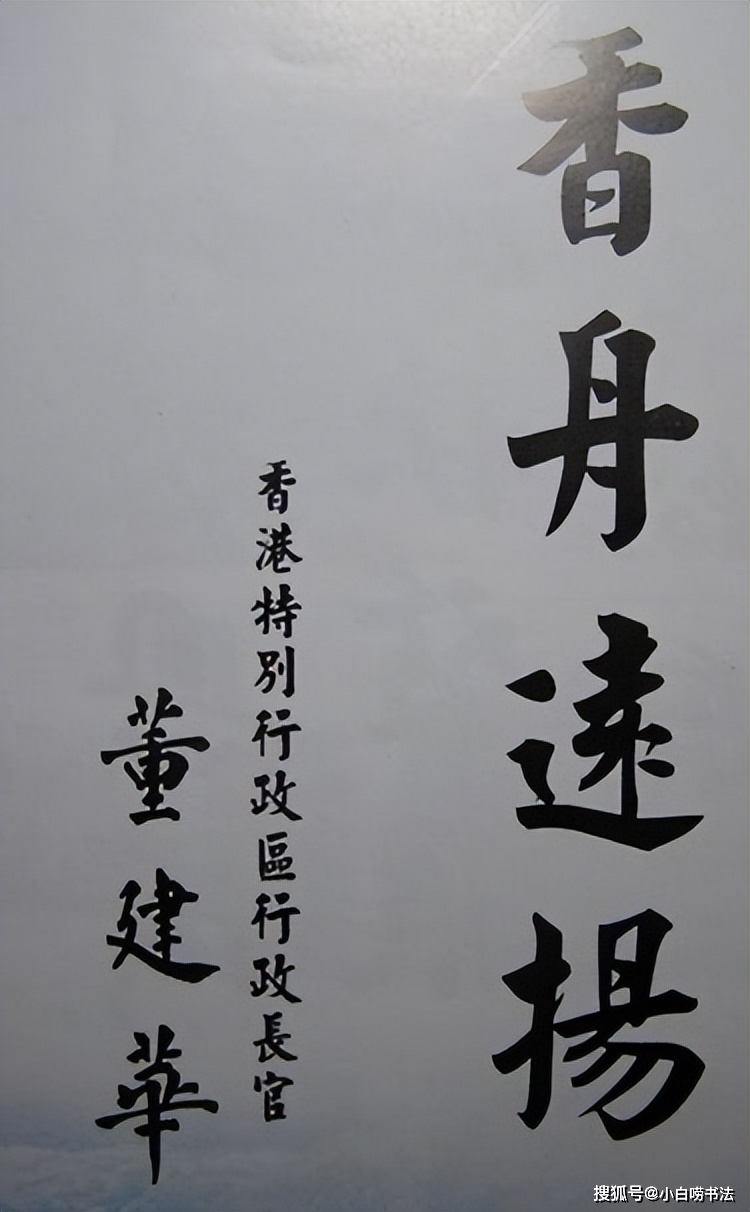 香舟遠揚
香港特別行政區行政長官
董建華
搜狐号@小白唠书法